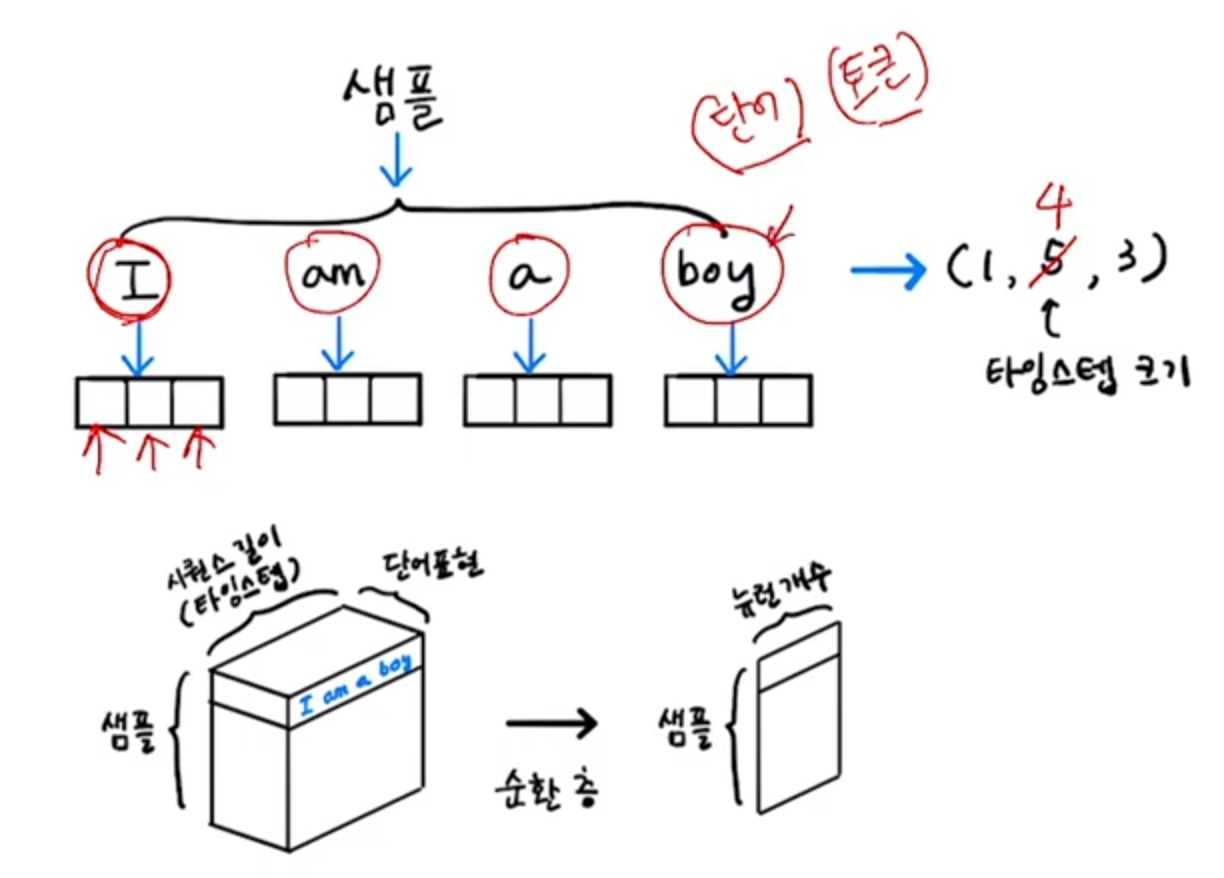 샘플
단어
토큰
I am a boy
4
(1, 5, 3)
타임스텝 크기
시퀀스 길이
(타임스텝)
단어표현
I am a boy
샘플
순환 층
뉴런개수
샘플